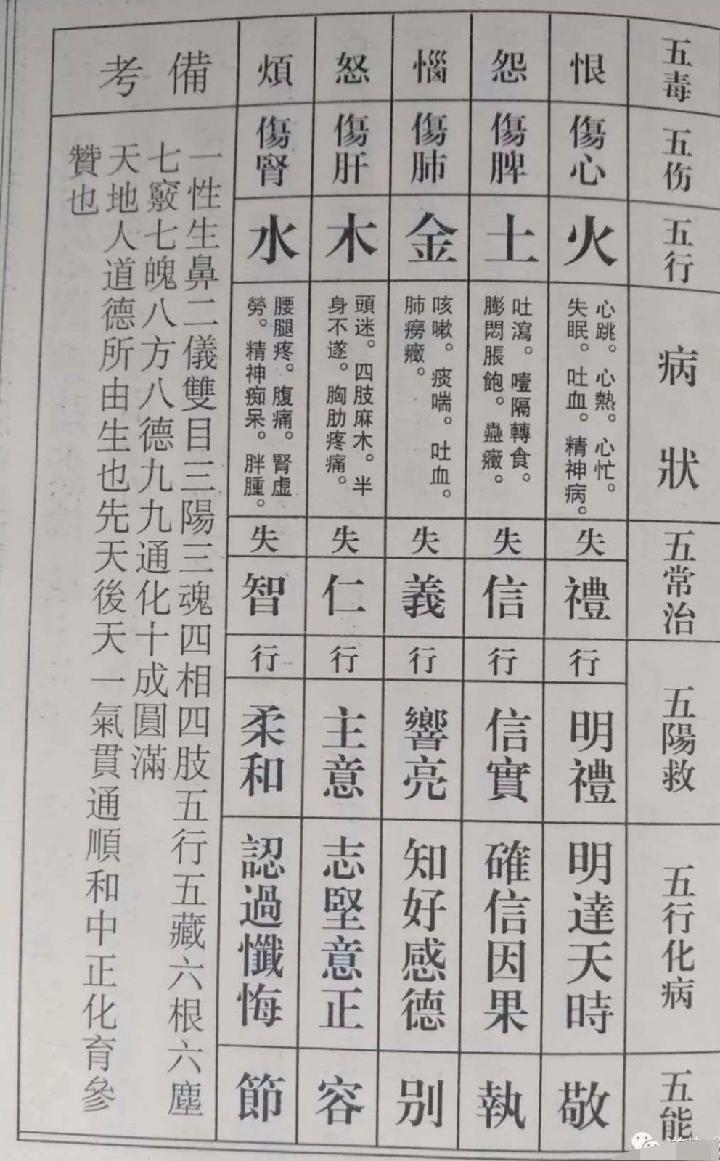 五毒
五伤
五行
病狀
五常治
五陽救
五行化病
五能
恨
傷心
火
心跳。心熱。心忙。
失眠。吐血。精神病。
失
禮
行
明禮
明達天時
敬
怨
傷脾
土
吐瀉。噎隔轉食。
膨悶脹飽。蠱癥。
失
信
行
信實
確信因果
執
惱
傷肺
金
咳嗽。痰喘。吐血。
肺癆癥。
失
義
行
響亮
知好感德
别
怒
傷肝
木
頭迷。四肢麻木。半
身不遂。胸肋疼痛。
失
仁
行
主意
志堅意正
容
煩
傷腎
水
腰腿疼。腹痛。腎虛
勞。精神痴呆。胖腫。
失
智
行
柔和
認過懺悔
節
備考
一性生鼻二儀雙目三陽三魂四相四肢五行五藏六根六塵
七竅七魄八方八德九九通化十成圓滿
天地人道德所由生也先天後天一氣貫通順和中正化育參
贊也